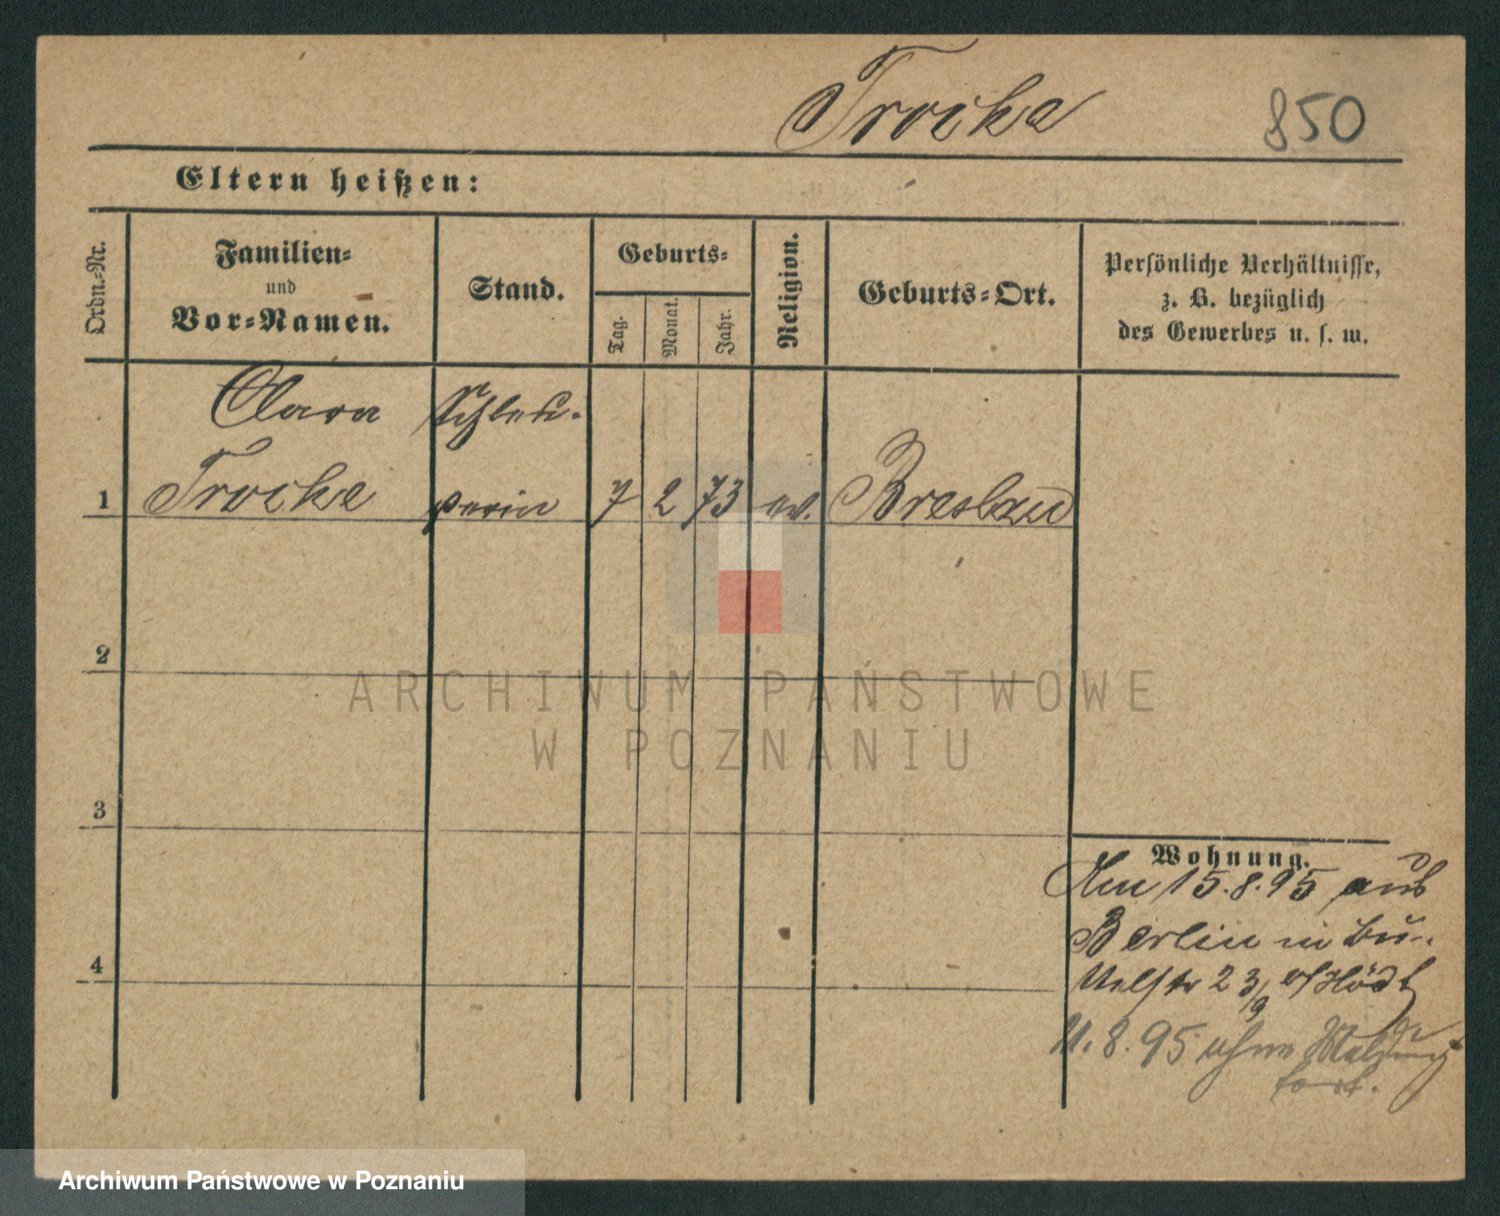 Trocka
850
Eltern heißen:
Ordn.-Nr.
Familien-
und
Vor-Namen.
Stand.
Geburts-
Tag.
Monat.
Jahr.
Religion.
Geburts-Ort.
Persönliche Verhältnisse,
z. B. bezüglich
des Gewerbes u. s. w.
Clara
1 Trocka 7 2 73 ev. Breslau
2
3
4
ARCHIWUM PAŃSTWOWE
W POZNANIU
Wohnung.
Am 15.8.95 aus
Berlin in
23/9
11.8.95 ohne Meldung
fort.
Archiwum Państwowe w Poznaniu